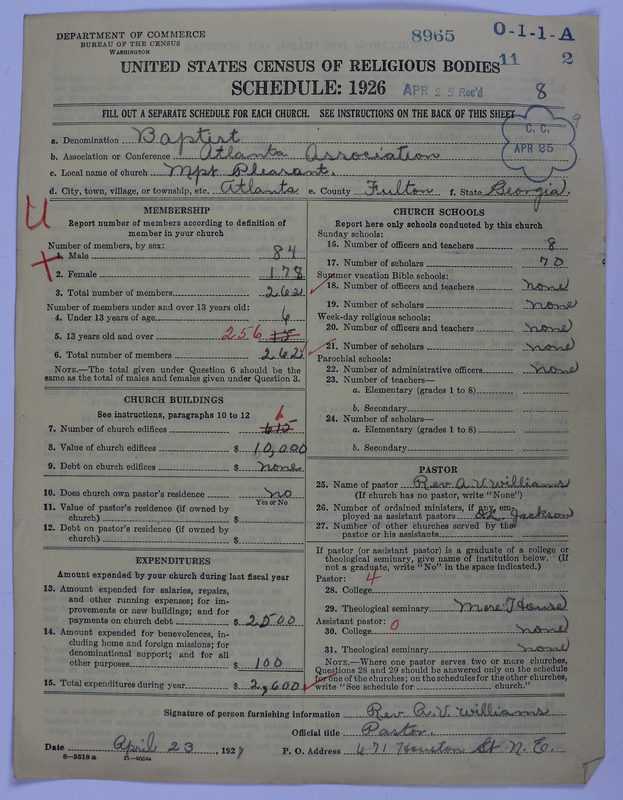 DEPARTMENT OF COMMERCE
BUREAU OF THE CENSUS
WASHINGTON
8965
0-1-1-A
11 2
UNITED STATES CENSUS OF RELIGIOUS BODIES
SCHEDULE: 1926 APR 25 Rec'd 8
FILL OUT A SEPARATE SCHEDULE FOR EACH CHURCH. SEE INSTRUCTIONS ON THE BACK OF THIS SHEET
C. C.
APR 25
9
a. Denomination Baptist
b. Association or Conference Atlanta Association
c. Local name of church Mpt Pleasant.
d. City, town, village, or township, etc. Atlanta e. County Fulton f. State Georgia.
U
MEMBERSHIP
Report number of members according to definition of
member in your church
Number of members, by sex:
1. Male 84
2. Female 178
3. Total number of members 262
Number of members under and over 13 years old:
4. Under 13 years of age 6
5. 13 years old and over 256 15
6. Total number of members 262
NOTE.—The total given under Question 6 should be the
same as the total of males and females given under Question 3.
CHURCH BUILDINGS
See instructions, paragraphs 10 to 12
7. Number of church edifices 615
8. Value of church edifices $ 10,000
9. Debt on church edifices $ none
10. Does church own pastor's residence no
Yes or No
11. Value of pastor's residence (if owned by
church) $
12. Debt on pastor's residence (if owned by
church) $
EXPENDITURES
Amount expended by your church during last fiscal year
13. Amount expended for salaries, repairs,
and other running expenses; for im-
provements or new buildings; and for
payments on church debt $ 2500
14. Amount expended for benevolences, in-
cluding home and foreign missions; for
denominational support; and for all
other purposes $ 100
15. Total expenditures during year $ 2,600
CHURCH SCHOOLS
Report here only schools conducted by this church
Sunday schools:
16. Number of officers and teachers 8
17. Number of scholars 70
Summer vacation Bible schools:
18. Number of officers and teachers none
19. Number of scholars none
Week-day religious schools:
20. Number of officers and teachers none
21. Number of scholars none
Parochial schools:
22. Number of administrative officers none
23. Number of teachers—
a. Elementary (grades 1 to 8)
b. Secondary
24. Number of scholars—
a. Elementary (grades 1 to 8)
b. Secondary
PASTOR
25. Name of pastor Rev. A. V. Williams
(If church has no pastor, write "None")
26. Number of ordained ministers, if any, em-
ployed as assistant pastors Jackson
27. Number of other churches served by the
pastor or his assistants
If pastor (or assistant pastor) is a graduate of a college or
theological seminary, give name of institution below. (If
not a graduate, write "No" in the space indicated.)
Pastor: 4
28. College
29. Theological seminary More House
Assistant pastor: 0
30. College none
31. Theological seminary none
NOTE.—Where one pastor serves two or more churches,
Questions 28 and 29 should be answered only on the schedule
for one of the churches; on the schedules for the other churches,
write "See schedule for church."
Signature of person furnishing information Rev A. V. Williams
Official title Pastor.
Date April 23, 1927 P. O. Address 471 Houston St N. E.
8—5518 a 11—9054a